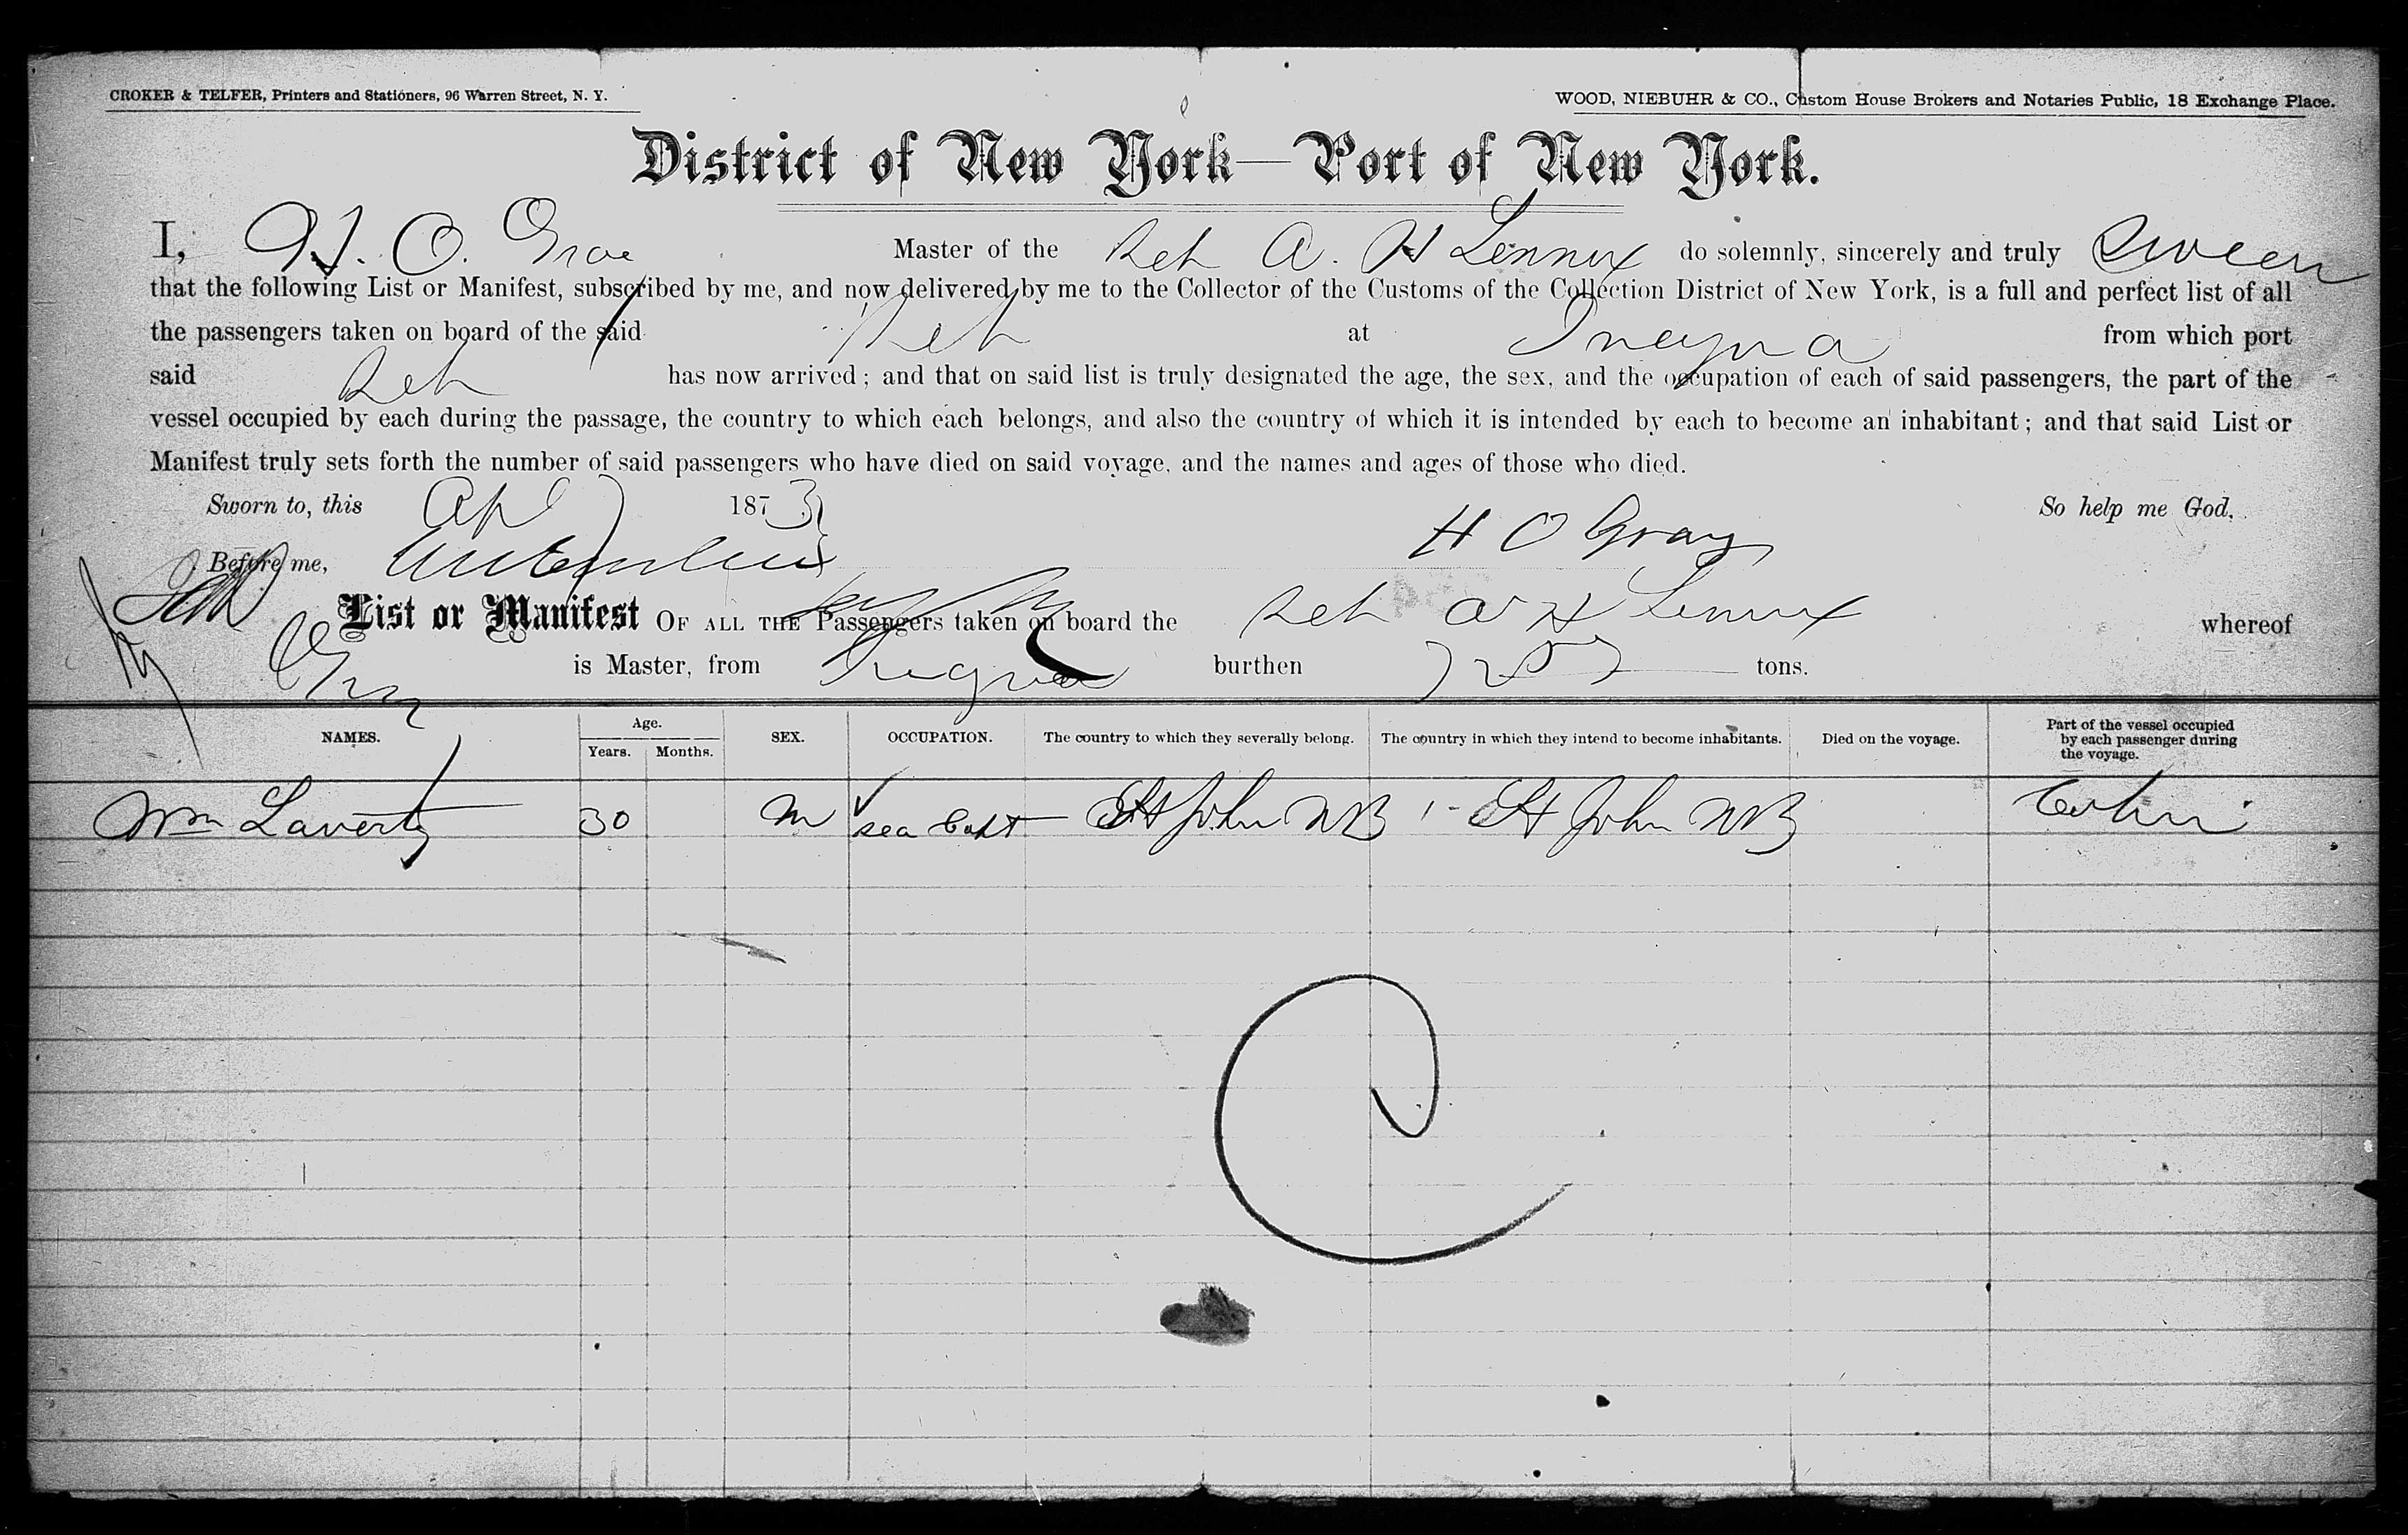 CROKER & TELFER, Printers and Stationers, 96 Warren Street, N. Y.
WOOD, NIEBUHR & CO., Custom House Brokers and Notaries Public, 18 Exchange Place.
District of New York—Port of New York.
I, H. O. Gray Master of the Sch A. H Lennox do solemnly, sincerely and truly swear
that the following List or Manifest, subscribed by me, and now delivered by me to the Collector of the Customs of the Collection District of New York, is a full and perfect list of all
the passengers taken on board of the said Sch at Inagua from which port
said Sch has now arrived; and that on said list is truly designated the age, the sex, and the occupation of each of said passengers, the part of the
vessel occupied by each during the passage, the country to which each belongs, and also the country of which it is intended by each to become an inhabitant; and that said List or
Manifest truly sets forth the number of said passengers who have died on said voyage, and the names and ages of those who died.
Sworn to, this Apl 7 1873 So help me God,
Before me, H O Gray
List or Manifest OF ALL THE Passengers taken on board the Sch A H Lennox whereof
is Master, from Inagua burthen tons.
NAMES. Age. Years. Months. SEX. OCCUPATION. The country to which they severally belong. The country in which they intend to become inhabitants. Died on the voyage. Part of the vessel occupied by each passenger during the voyage.
Wm Laverty 30 M sea Capt St John NB St John NB Cabin